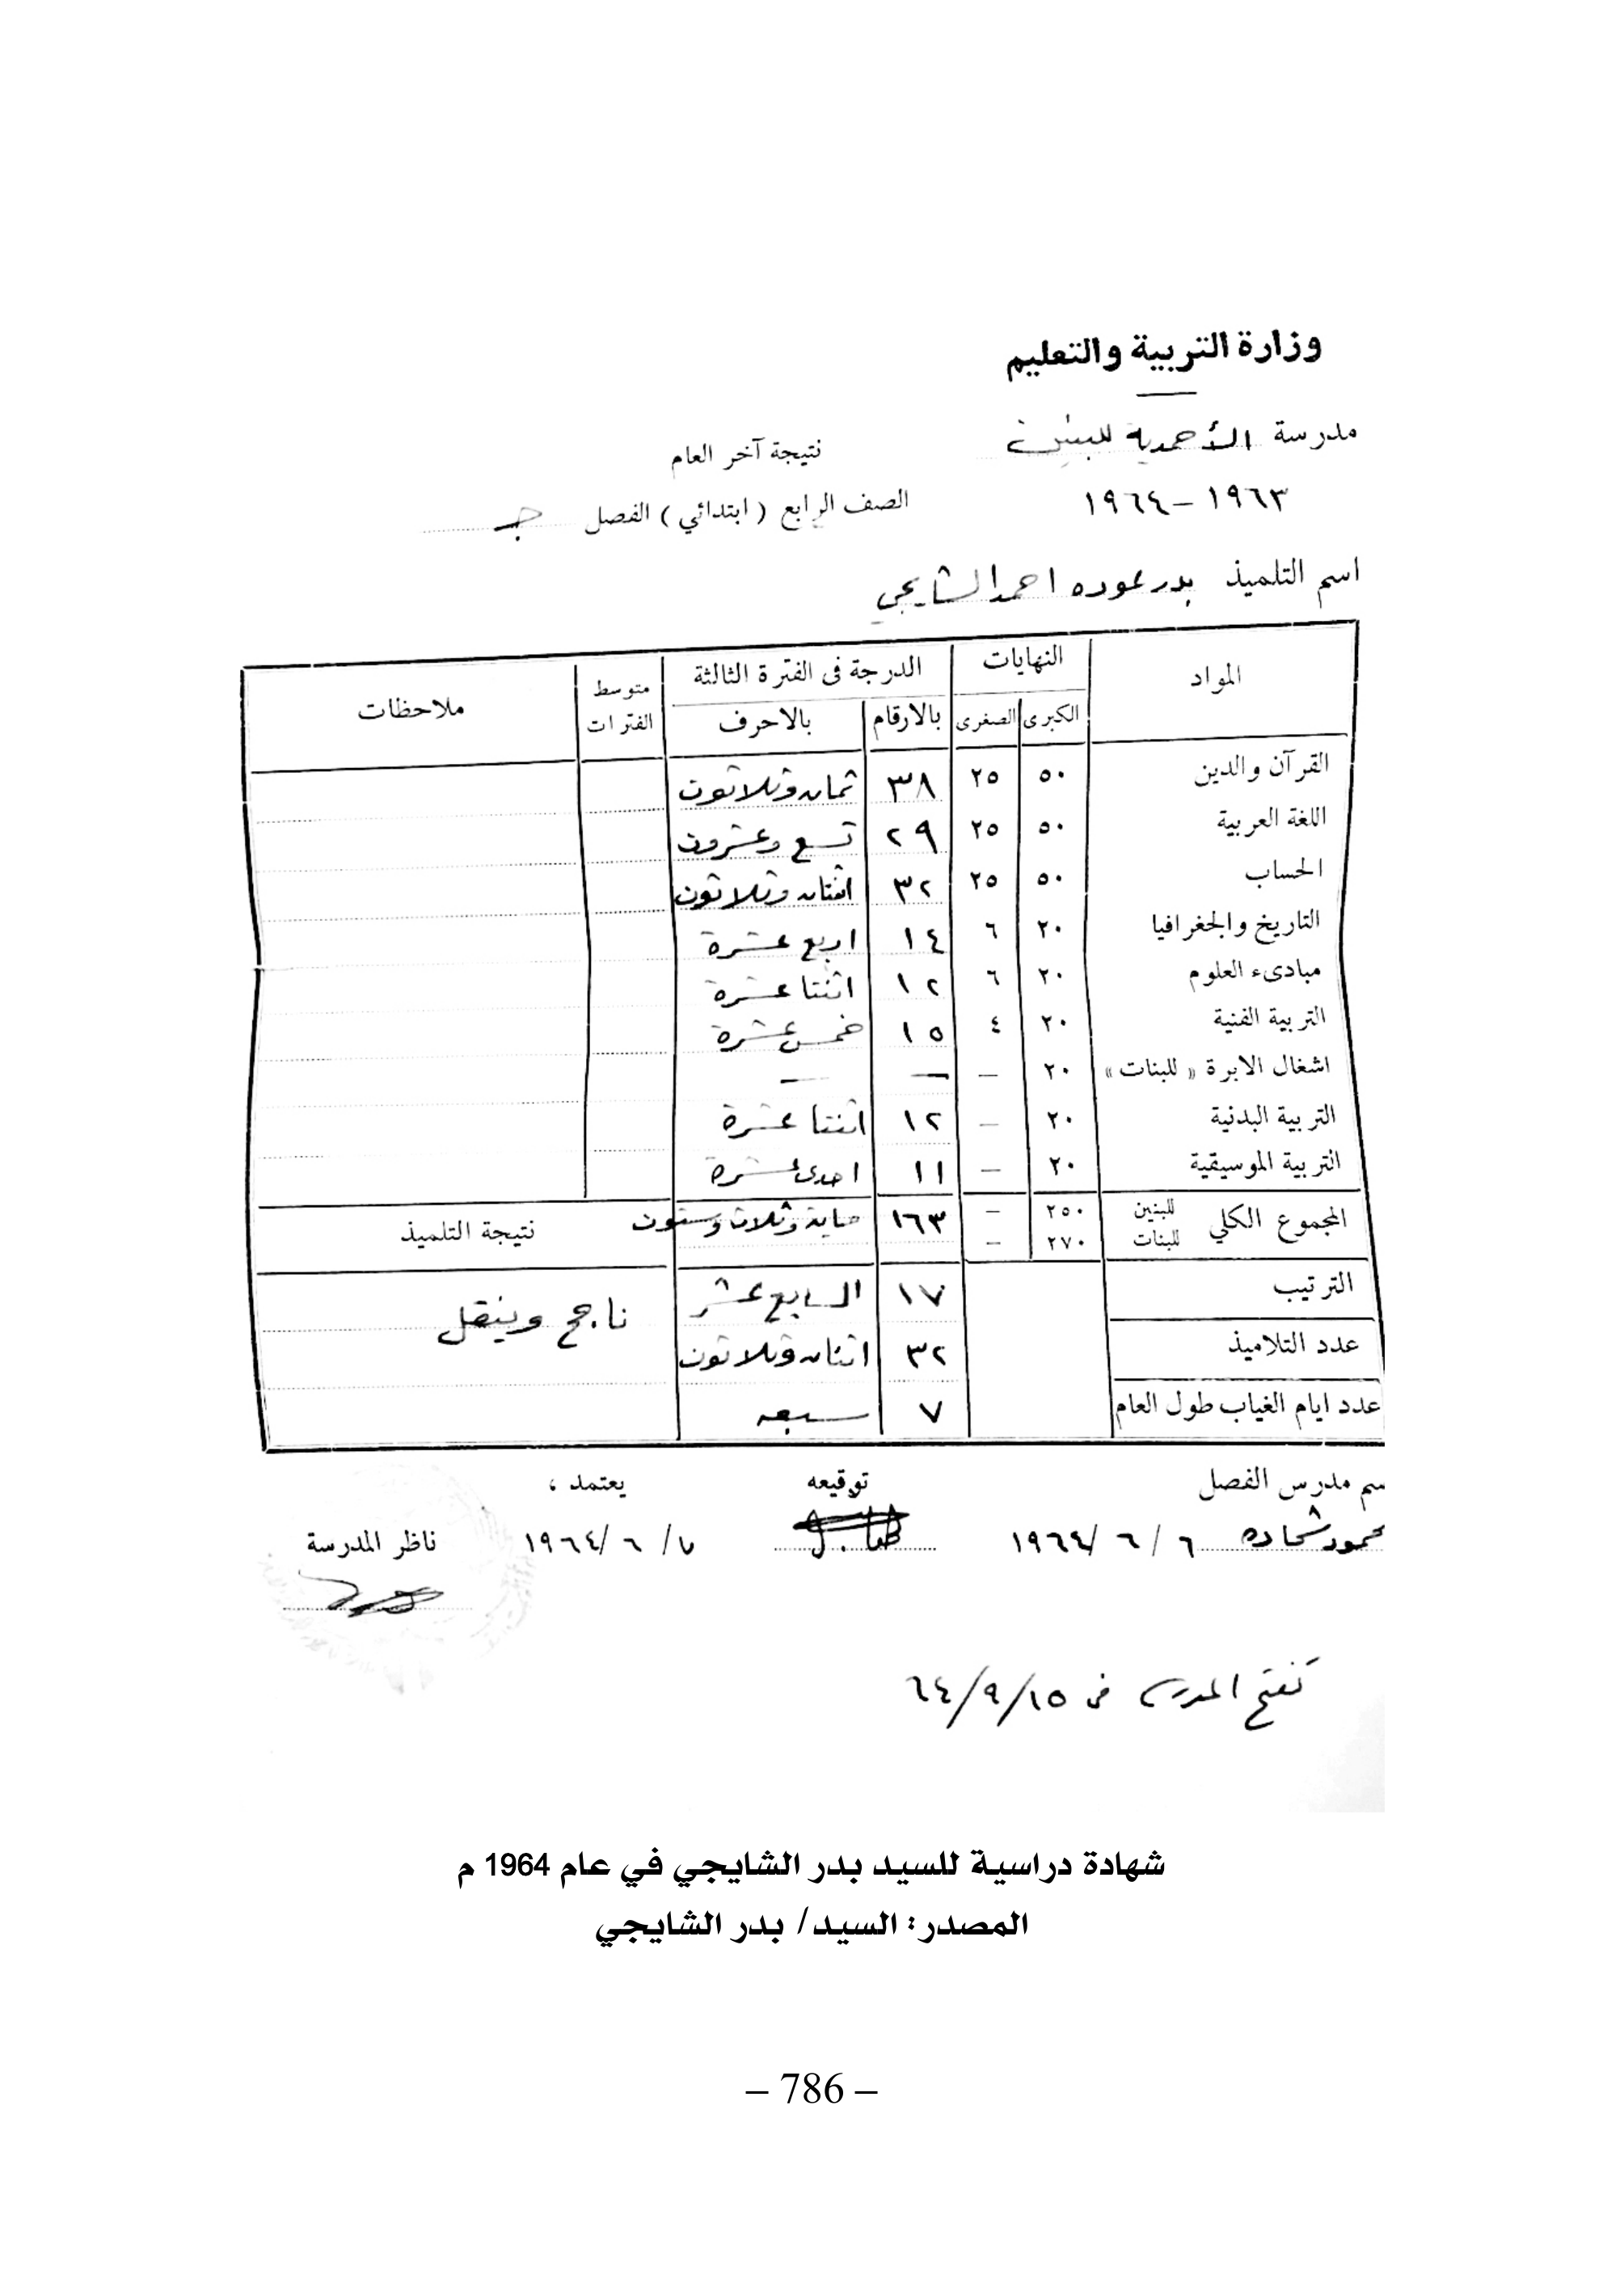 وزارة التربية والتعليم
مدرسة الأحمدية للبنين
نتيجة آخر العام
١٩٦٣ – ١٩٦٤
الصف الرابع ( ابتدائي ) الفصل جـ
اسم التلميذ بدر عوده احمد الشايجي
المواد النهايات الدرجة فى الفترة الثالثة متوسط الفترات ملاحظات
الكبرى الصغرى بالارقام بالاحرف
القرآن والدين ٥٠ ٢٥ ٣٨ ثمان وثلاثون
اللغة العربية ٥٠ ٢٥ ٢٩ تسع وعشرون
الحساب ٥٠ ٢٥ ٣٢ اثنتان وثلاثون
التاريخ والجغرافيا ٢٠ ٦ ١٤ اربع عشرة
مبادىء العلوم ٢٠ ٦ ١٢ اثنتا عشرة
التربية الفنية ٢٠ ٤ ١٥ خمس عشرة
اشغال الابرة « للبنات » ٢٠ – – –
التربية البدنية ٢٠ – ١٢ اثنتا عشرة
التربية الموسيقية ٢٠ – ١١ احدى عشرة
المجموع الكلي للبنين ٢٥٠ – ١٦٣ ماية وثلاث وستون نتيجة التلميذ
للبنات ٢٧٠ –
الترتيب ١٧ السابع عشر ناجح وينقل
عدد التلاميذ ٣٢ اثنان وثلاثون
عدد ايام الغياب طول العام ٧ سبعه
سم مدرس الفصل توقيعه يعتمد ،
محمود شحاده ٦ / ٦ / ١٩٦٤ ٧ / ٦ / ١٩٦٤ ناظر المدرسة
تفتح المدرسة في ١٥/٩/٦٤
شهادة دراسية للسيد بدر الشايجي في عام 1964 م
المصدر: السيد/ بدر الشايجي
– 786 –